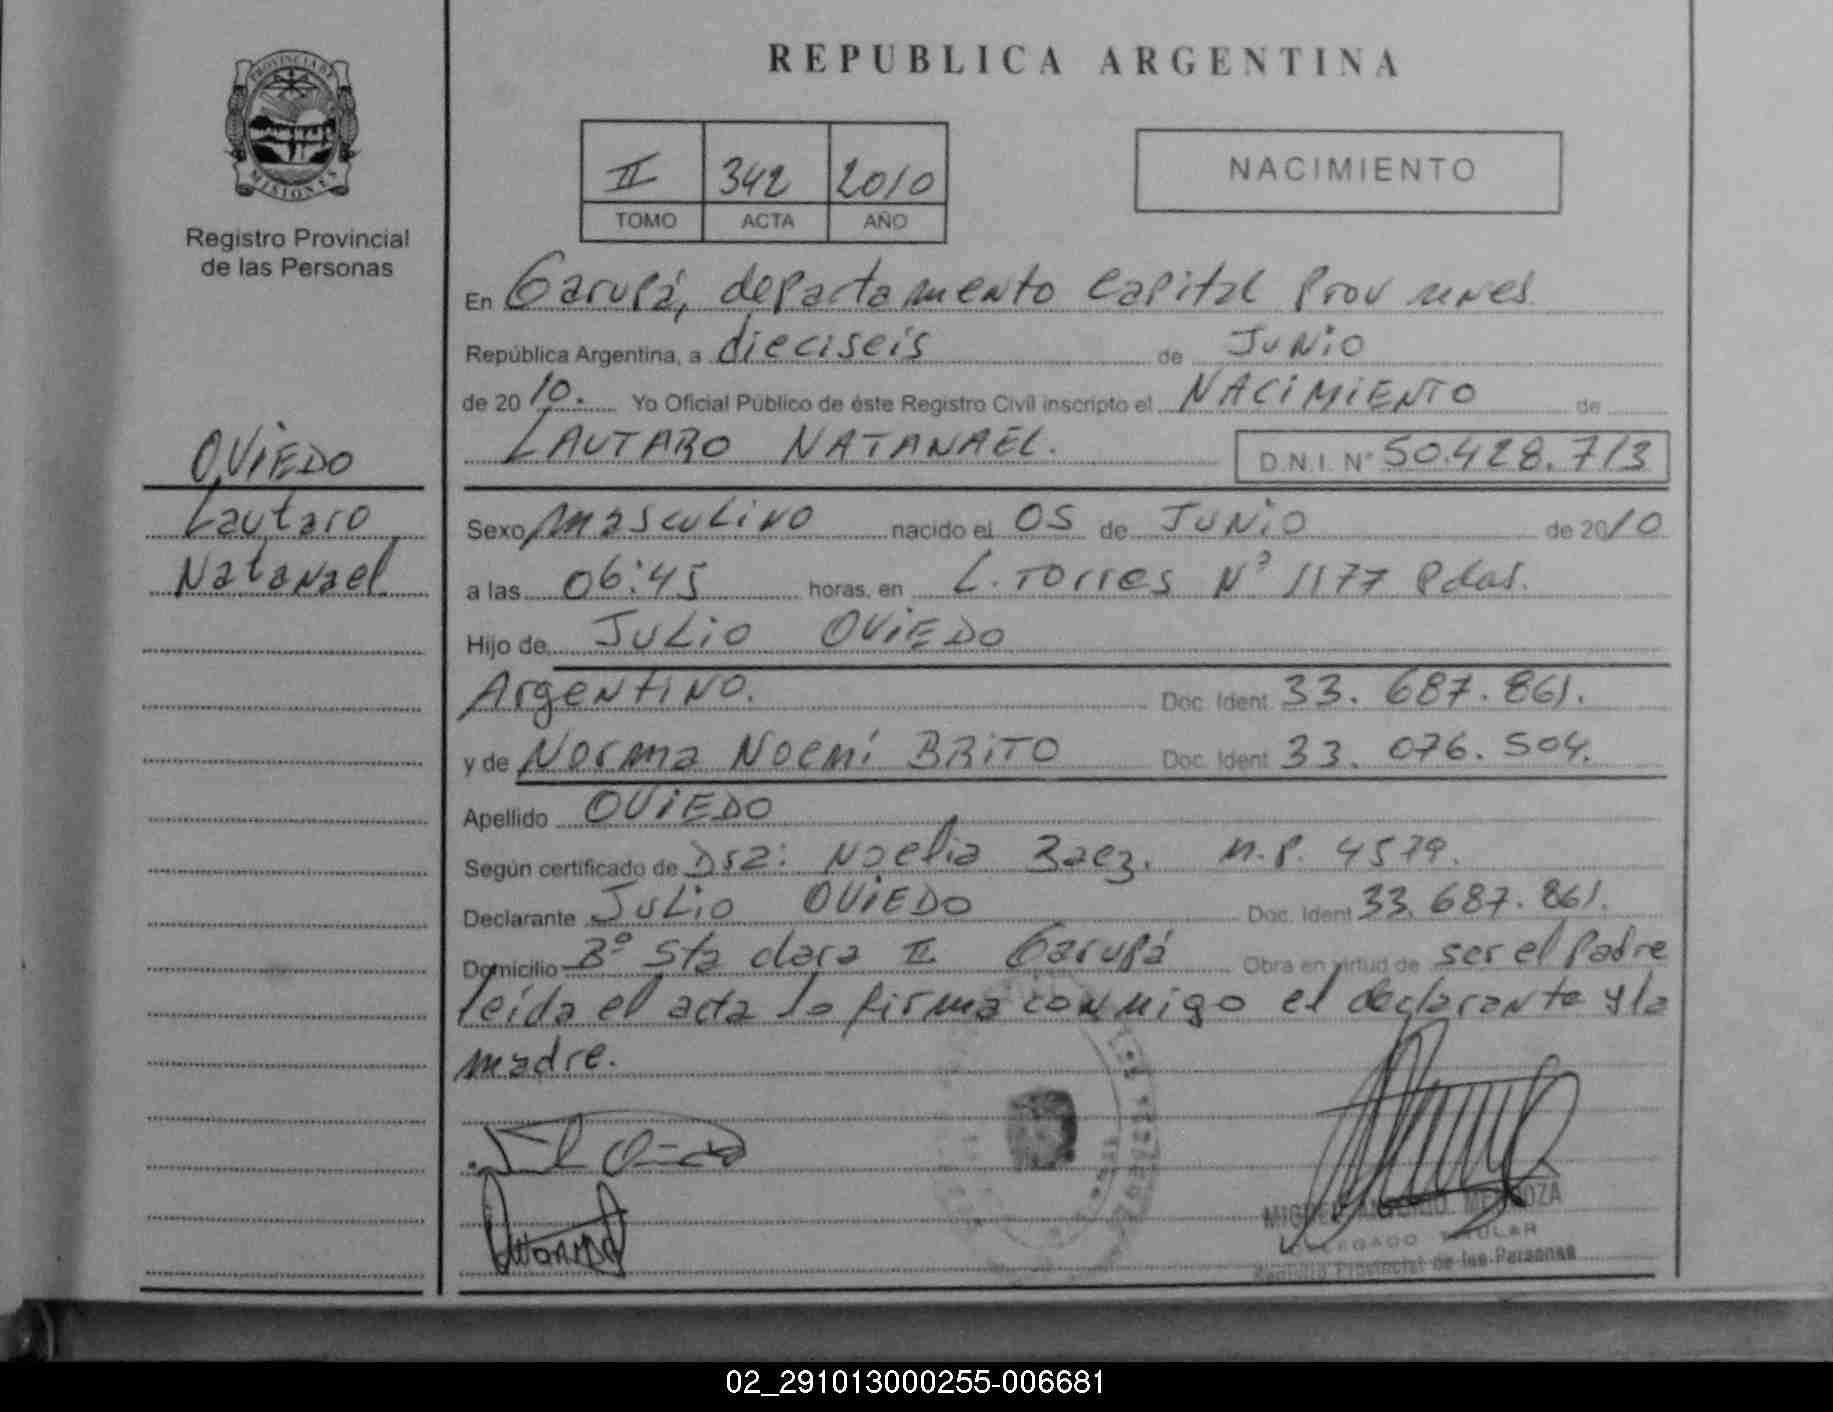 PROVINCIA DE
MISIONES
Registro Provincial
de las Personas
OVIEDO
Lautaro
Natanael
REPUBLICA ARGENTINA
II 342 2010
TOMO ACTA AÑO
NACIMIENTO
En Garupá, departamento Capital Prov
República Argentina, a dieciseis de JUNIO
de 2010. Yo Oficial Público de éste Registro Civil inscripto el NACIMIENTO de
LAUTARO NATANAEL. D.N.I. Nº 50.428.713
Sexo masculino nacido el 05 de JUNIO de 2010
a las 06:45 horas, en L. Torres Nº 1177 Pdas.
Hijo de JULIO OVIEDO
Argentino. Doc. Ident. 33.687.861.
y de Norma Noemí BRITO Doc. Ident. 33.076.504.
Apellido OVIEDO
Según certificado de Dra: Noelia Baez. M.P. 4579.
Declarante JULIO OVIEDO Doc. Ident 33.687.861.
Domicilio Bº Sta clara II Garupá Obra en virtud de ser el Padre
leída el acta la firma conmigo el declarante y la
madre.
MIGUEL ANTONIO MENDOZA
DELEGADO TITULAR
Registro Provincial de las Personas
02_291013000255-006681